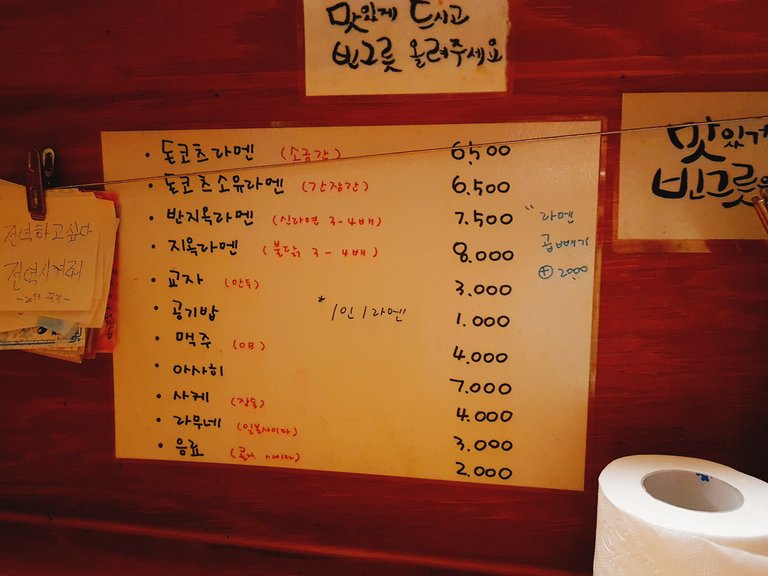 맛있게 드시고
빈그릇 올려주세요
맛있게
빈그릇
전역하고싶다
전역시켜줘
• 돈코츠라멘 (소금간) 6,500
• 돈코츠소유라멘 (간장간) 6.500
• 반지옥라멘 (신라면 3-4배) 7.500
• 지옥라멘 (불닭 3-4배) 8.000
• 교자 (만두) 3.000
• 공기밥 1.000
• 맥주 (OB) 4.000
• 아사히 7.000
• 사케 (잔술) 4.000
• 라무네 (일본사이다) 3.000
• 음료 (콜라, 사이다) 2.000
* 1인 1라멘
라멘
곱빼기
⊕ 2000